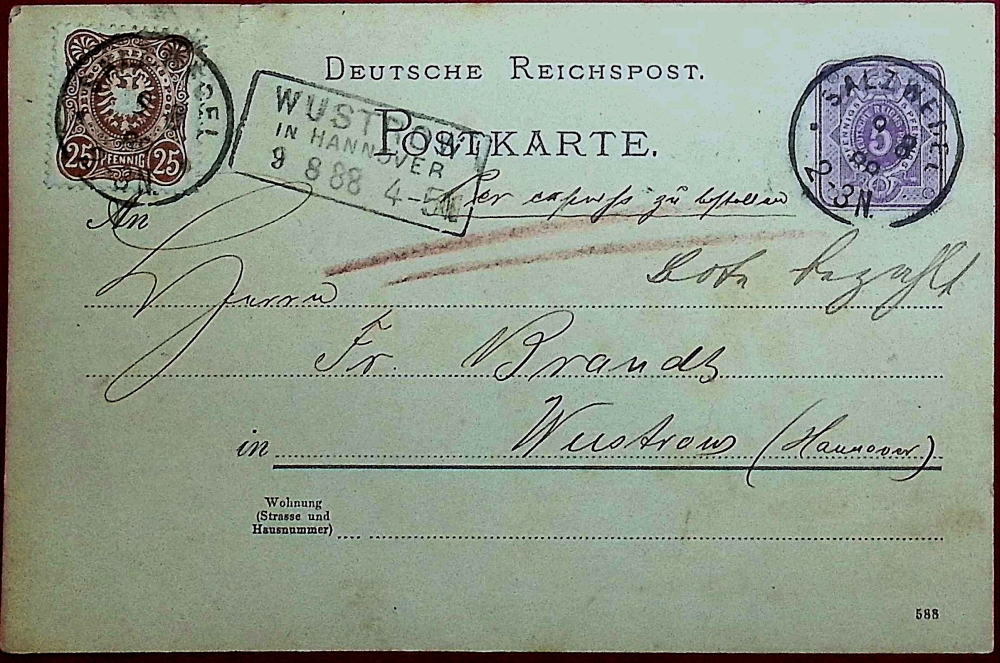 DEUTSCHE REICHSPOST.
POSTKARTE.
DEUTSCHE REICHSPOST
25 PFENNIG 25
WUSTROW
IN HANNOVER
9 8 88 4-5N
SALZWEDEL
9
8
88
2-3N.
5
per express zu bestellen
Bote bezahlt
An
Herrn
Fr. Brandt
in Wustrow (Hannover)
Wohnung
(Strasse und
Hausnummer)
588